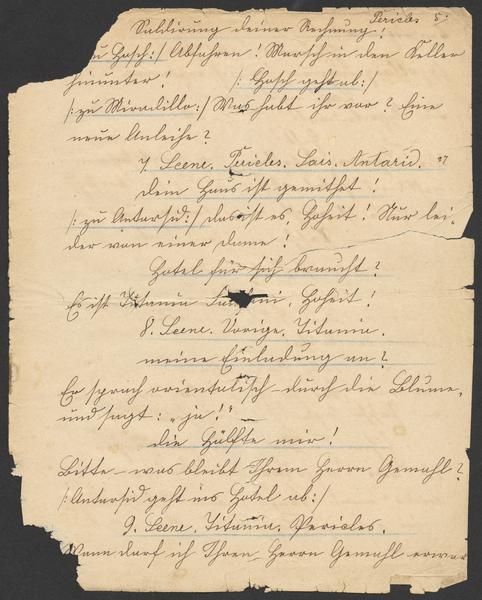 Pericles 5.
Saldirung deiner Rechnung!
zu Gosch:/ Abfahren! Marsch in den Keller
hinunter! /: Gosch geht ab:/
/: zu Miradillo:/ Was habt ihr vor? Eine
neue Anleihe?
7. Scene. Pericles. Lais. Antarsid.
Dein Haus ist gemithet!
/: zu Antarsid:/ das ist es, Hoheit! Nur lei-
der von einer Dame!
Hotel für sich braucht?
Es ist Titania, Hoheit!
8. Scene. Vorige. Titania.
meine Einladung an?
Er sprach orientalisch – durch die Blume,
und sagt: „ja!“ –
die Hälfte mir!
Bitte – was bleibt Ihrem Herrn Gemahl?
/: Antarsid geht ins Hotel ab:/
9. Scene. Titania. Pericles.
Wann darf ich Ihren Herrn Gemahl erwar